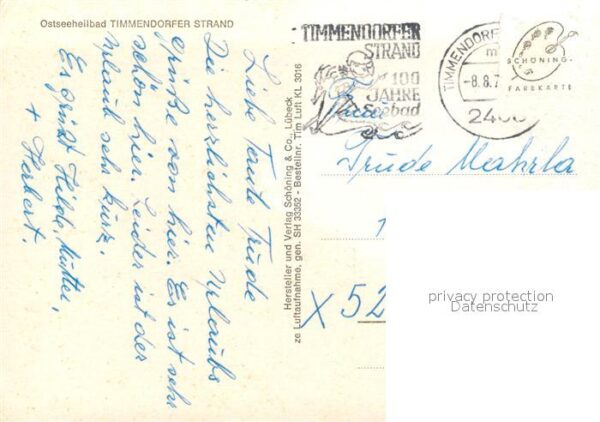 Ostseeheilbad TIMMENDORFER STRAND
Liebe Tante Trude
Die herzlichsten Urlaubs
grüße von hier. Es ist sehr
schön hier. Leider ist der
Urlaub sehr kurz.
Es grüßt Hilde, Mutter,
+ Herbert.
Hersteller und Verlag Schöning & Co., Lübeck
ze Luftaufnahme, gen. SH 33352 - Bestellnr. Tim Luft KL 3016
TIMMENDORFER
STRAND
100
JAHRE
Seebad
TIMMENDORFE
-8.8.7
24
SCHÖNING-
FARBKARTE
Trude Mahrla
X 52
privacy protection
Datenschutz